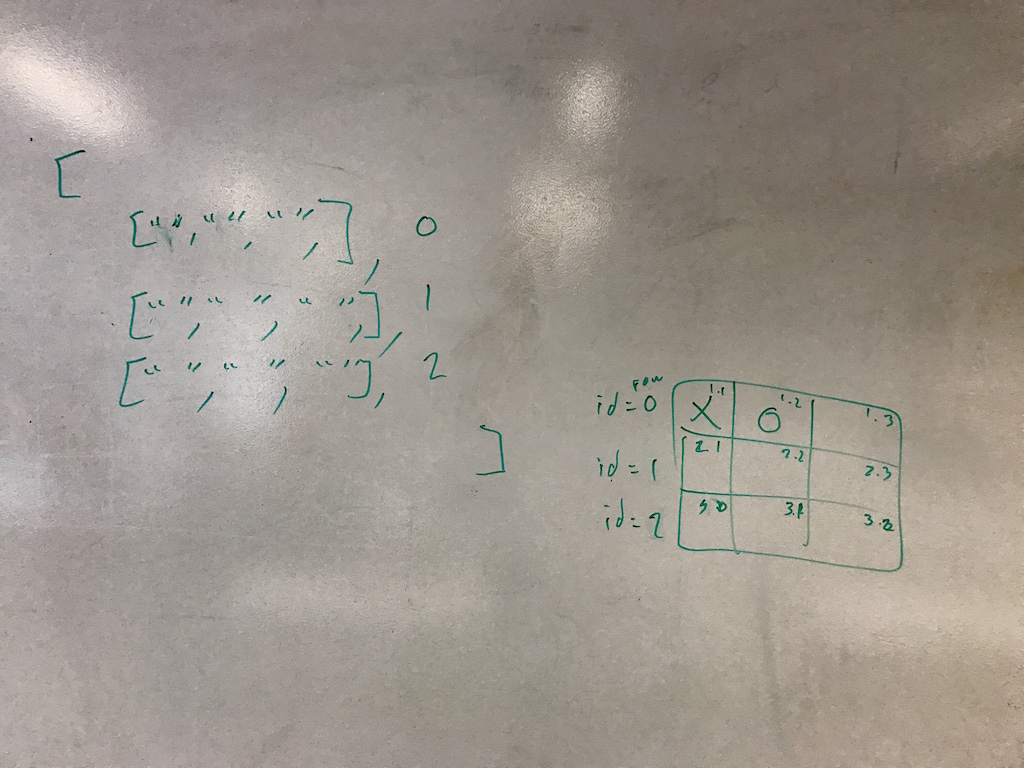 [
["", "", "",], 0
["", "", "",], 1
["", "", ""], 2
]
row
id=0 X 1.1 O 1.2 1.3
id=1 2.1 2.2 2.3
id=2 3.1 3.2